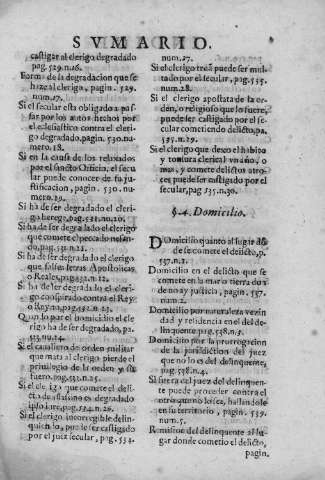 SVMARIO.
castigar al clerigo degradado
pag.529.n.16.
Forma de la degradacion que se
haze al clerigo, pagin. 529.
num.17.
Si el secular esta obligado a pas-
sar por los autos hechos por
el eclesiastico contra el clerigo
degradado, pagin. 530. nume-
ro.18.
Si en la causa de los relaxados
por el sancto Officio, el secu
lar puede conocer de su ju-
stificacion, pagin. 530. nu-
mero.19.
Si ha de ser degradado el cleri-
go herege, pag.531.nu.20.
Si ha de ser degradado el clerigo
que comete el pecado nefan-
do, pag.531.n.21.
Si ha de ser degradado el clerigo
que falsea letras Apostolicas
o Reales, pag.531.n.22.
Si ha de ser degradado el cleri-
go conspirado contra el Rey
o Reyno, pag.532.n.23.
Quando por el homicidio el cle
rigo ha de ser degradado, pa.
533.nu.24.
Si el cauallero de orden militar
que mata al clerigo pierde el
priuilegio de la orden y su
fuero, pag.533.n.25.
Si el clerigo que comete el deli-
cto de assasino es degradado
ipso iure, pag.534.n.26.
Si el clerigo incorregible delin-
quiendo, puede ser castigado
por el juez secular, pag.534.
num.27.
Si el clerigo treā puede ser mul-
tado por el secular, pag.535.
num.28.
Si el clerigo apostata de la or-
den, o religioso que lo fuere,
puede ser castigado por el se-
cular cometiendo delicto, pa.
535.n.29.
Si el clerigo que dexo el habito
y tonsura clerical vn año, o
mas, y comete delictos atro-
ces puede ser castigado por el
secular, pag 535.n.30.
§.4. Domicilio.
DOmicilio quinto al lugar dō
de se comete el delicto, p.
537.n.1.
Domicilio en el delicto que se
comete en la mar o tierra do
no ay justicia, pagin. 537.
num.2.
Domicilio por naturaleza vezin
dad y residencia en el del de-
linquente pag.538.n.3.
Domicilio por la prorrogacion
de la jurisdiction del juez
que no lo es del delinquente,
pag.538.n.4.
Si fuera el juez del delinquen-
te puede proceder contra el
no lo siendo, hallandole
en su territorio, pagin. 539.
num.5.
Remission del delinquente al lu-
gar donde cometio el delicto,
pagin.